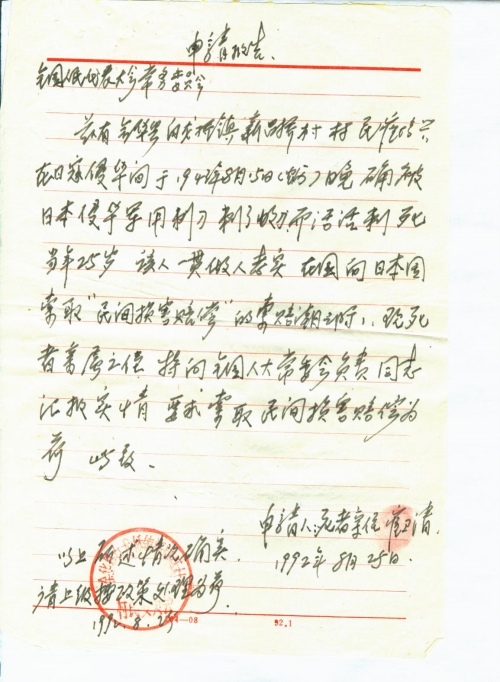 申请报告
全国人民代表大会常务委员会
兹有金华县白龙桥镇 村村民
在日寇侵华间于1942年8月15日(古历)晚 确被
日本侵华军用刺刀刺了 而活活刺死
当年25岁 该人一贯做人老实 在国向日本国
索取“民间损害赔偿”的索赔潮之时, 现死
者亲属之侄 特向全国人大常委会负责同志
汇报实情 要求索取民间损害赔偿为
荷 此致.
申请人:死者亲侄 清
1992年8月25日.
以上所述情况确实
请上级按政策处理为荷.
1992.8.25
94—08 92.1